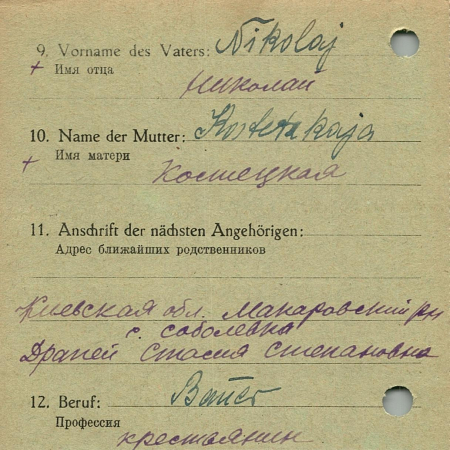 9. Vorname des Vaters: Nikolaj
+ Имя отца
Николай
10. Name der Mutter: Kostetzkaja
+ Имя матери
Костецкая
11. Anschrift der nächsten Angehörigen:
Адрес ближайших родственников
Киевская обл. Макаровский рн
с. соболевка
Драпей Стасия Степановна
12. Beruf: Bauer
Профессия
крестьянин